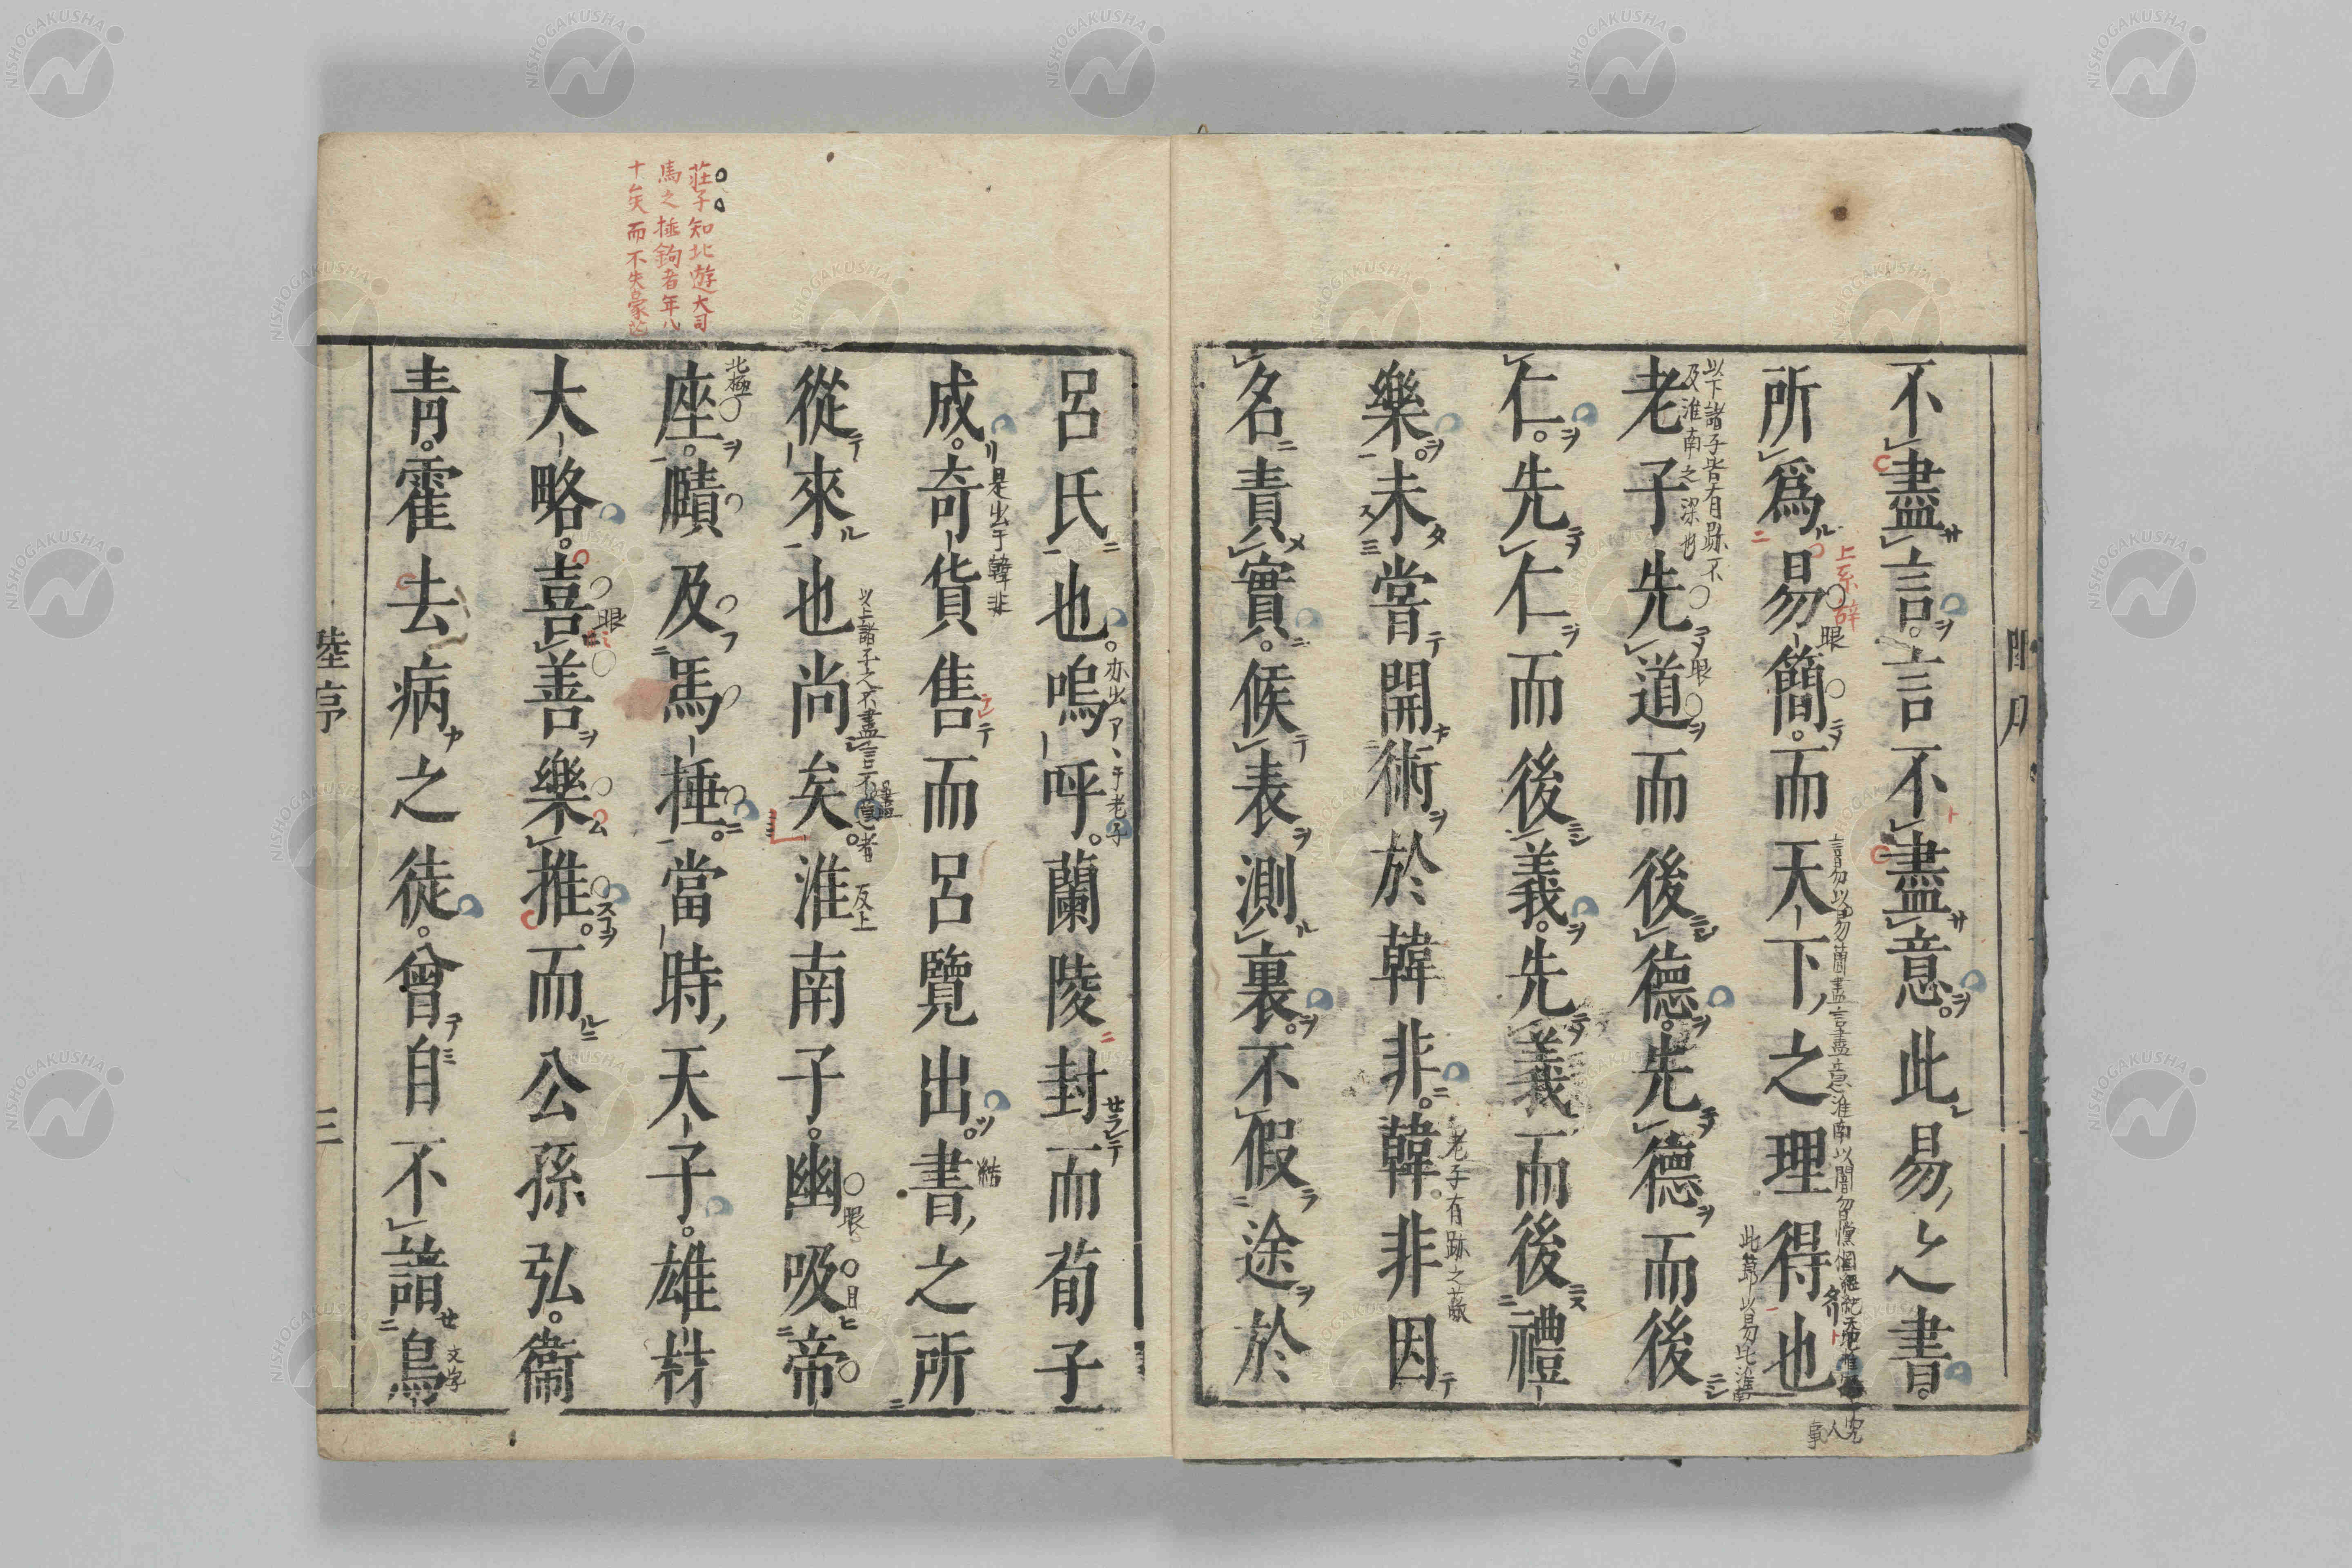 不盡言言不盡意此易之書
所爲易簡而天下之理得也
老子先道而後德先德而後
仁先仁而後義先義而後禮
樂未嘗開術於韓非韓非因
名責實候表測裏不假途於
莊子知北遊大司
馬之捶鉤者年八
十矣而不失豪芒
呂氏也嗚呼蘭陵封而荀子
成奇貨售而呂覽出書之所
從來也尚矣淮南子幽吸帝
座賾及馬捶當時天子雄材
大略喜善樂推而公孫弘衞
青霍去病之徒曾自不諳鳥
上系辭
以下諸子皆有跡不
及淮南之深也
老子有跡之蔽
是出于韓非
北極
文字
陸序
三
NISHOGAKUSHA